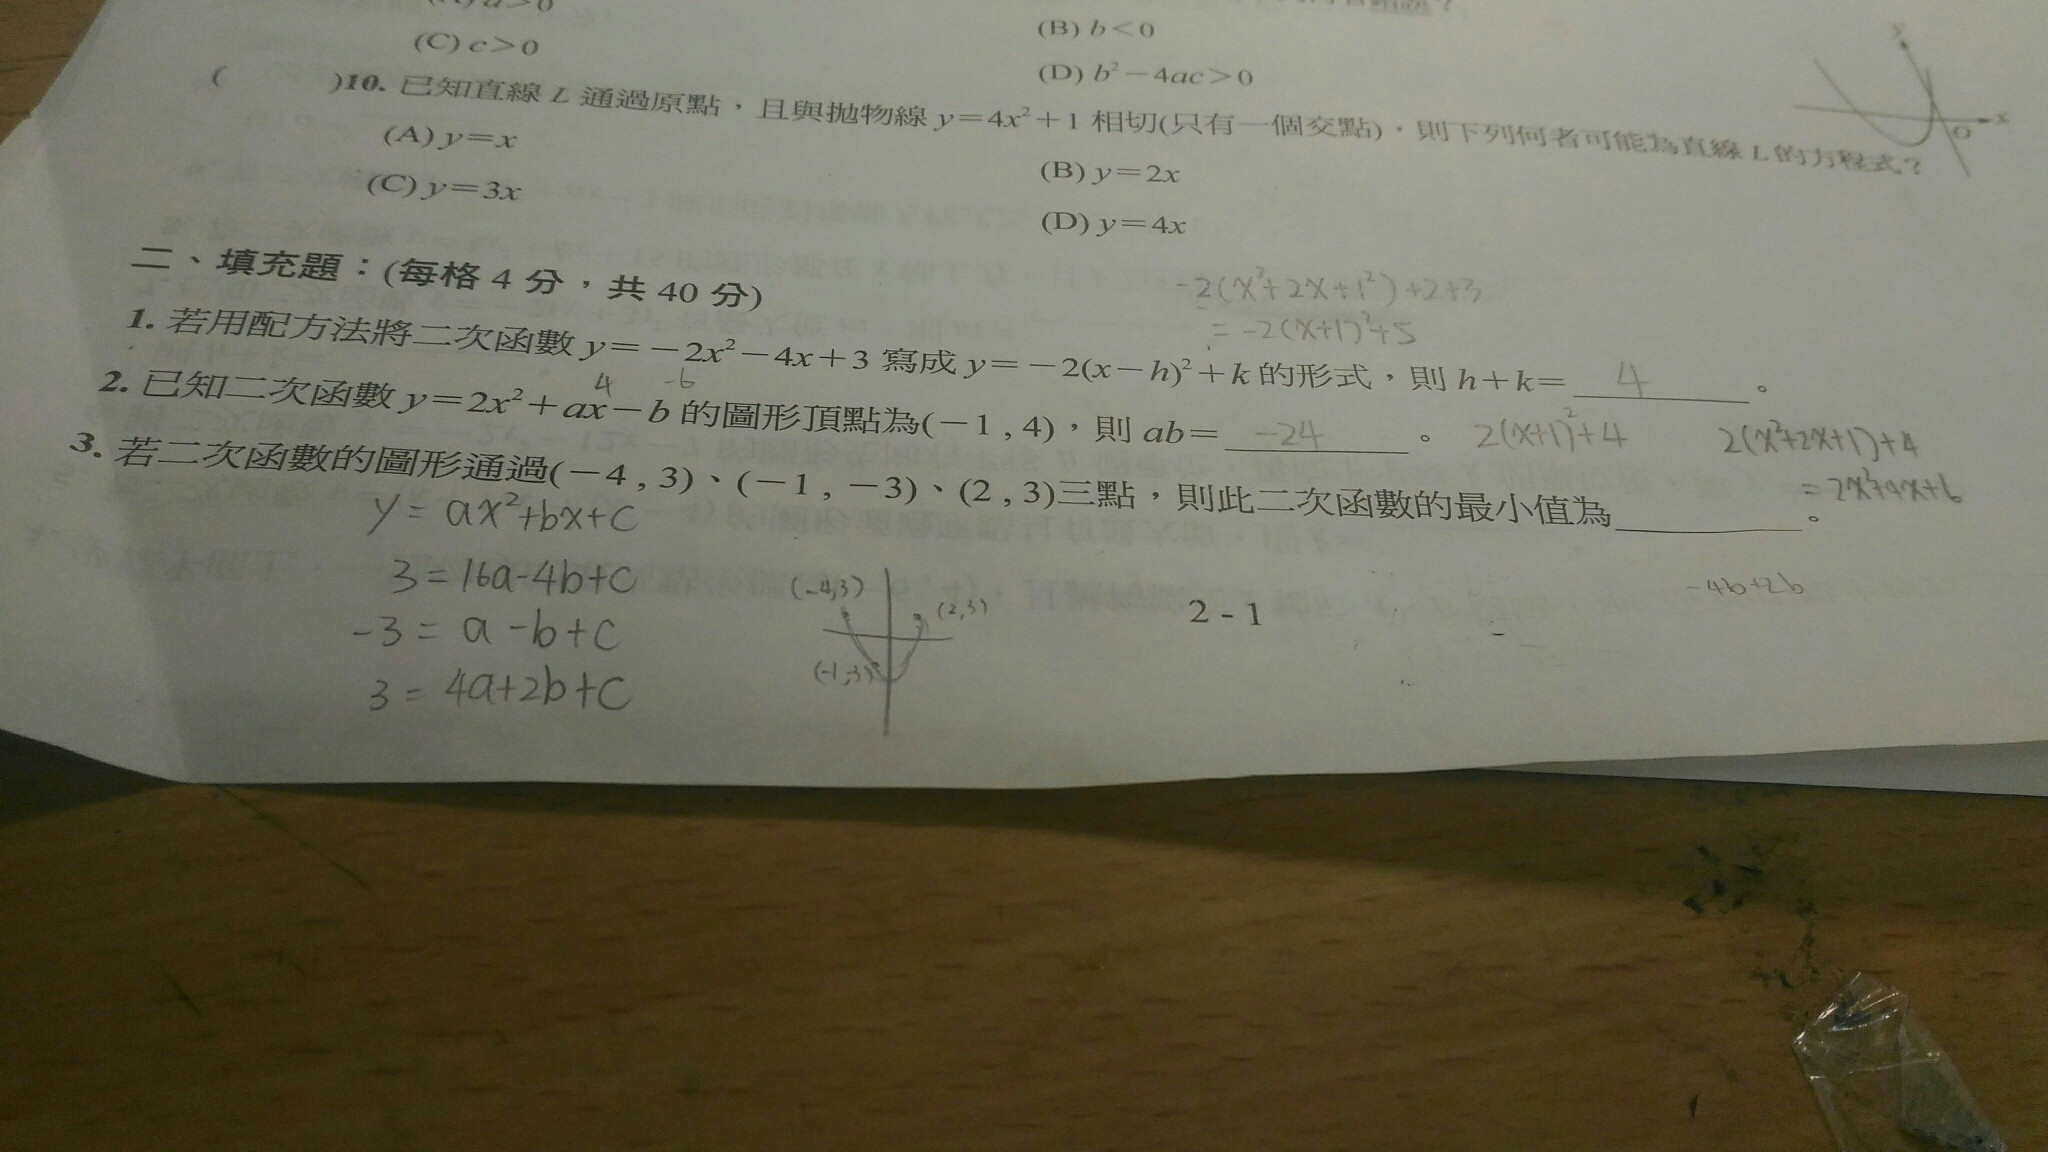 (A) a>0
(B) b<0
(C) c>0
(D) b²－4ac>0
( )10. 已知直線 L 通過原點，且與拋物線 y=4x²+1 相切(只有一個交點)，則下列何者可能為直線 L 的方程式？
(A) y=x
(B) y=2x
(C) y=3x
(D) y=4x
y
x
O
二、填充題：(每格 4 分，共 40 分)
-2(x²+2x+1²)+2+3
= -2(x+1)²+5
1. 若用配方法將二次函數 y=－2x²－4x+3 寫成 y=－2(x－h)²+k 的形式，則 h+k= 4 。
4 -6
2. 已知二次函數 y=2x²+ax－b 的圖形頂點為(－1 , 4)，則 ab= -24 。 2(x+1)²+4 2(x²+2x+1)+4
= 2x²+4x+6
3. 若二次函數的圖形通過(－4 , 3)、(－1 , －3)、(2 , 3)三點，則此二次函數的最小值為 。
y = ax²+bx+c
3 = 16a-4b+c
-3 = a-b+c
3 = 4a+2b+c
(-4,3)
(2,3)
(-1,3)
-4b+2b
2 - 1